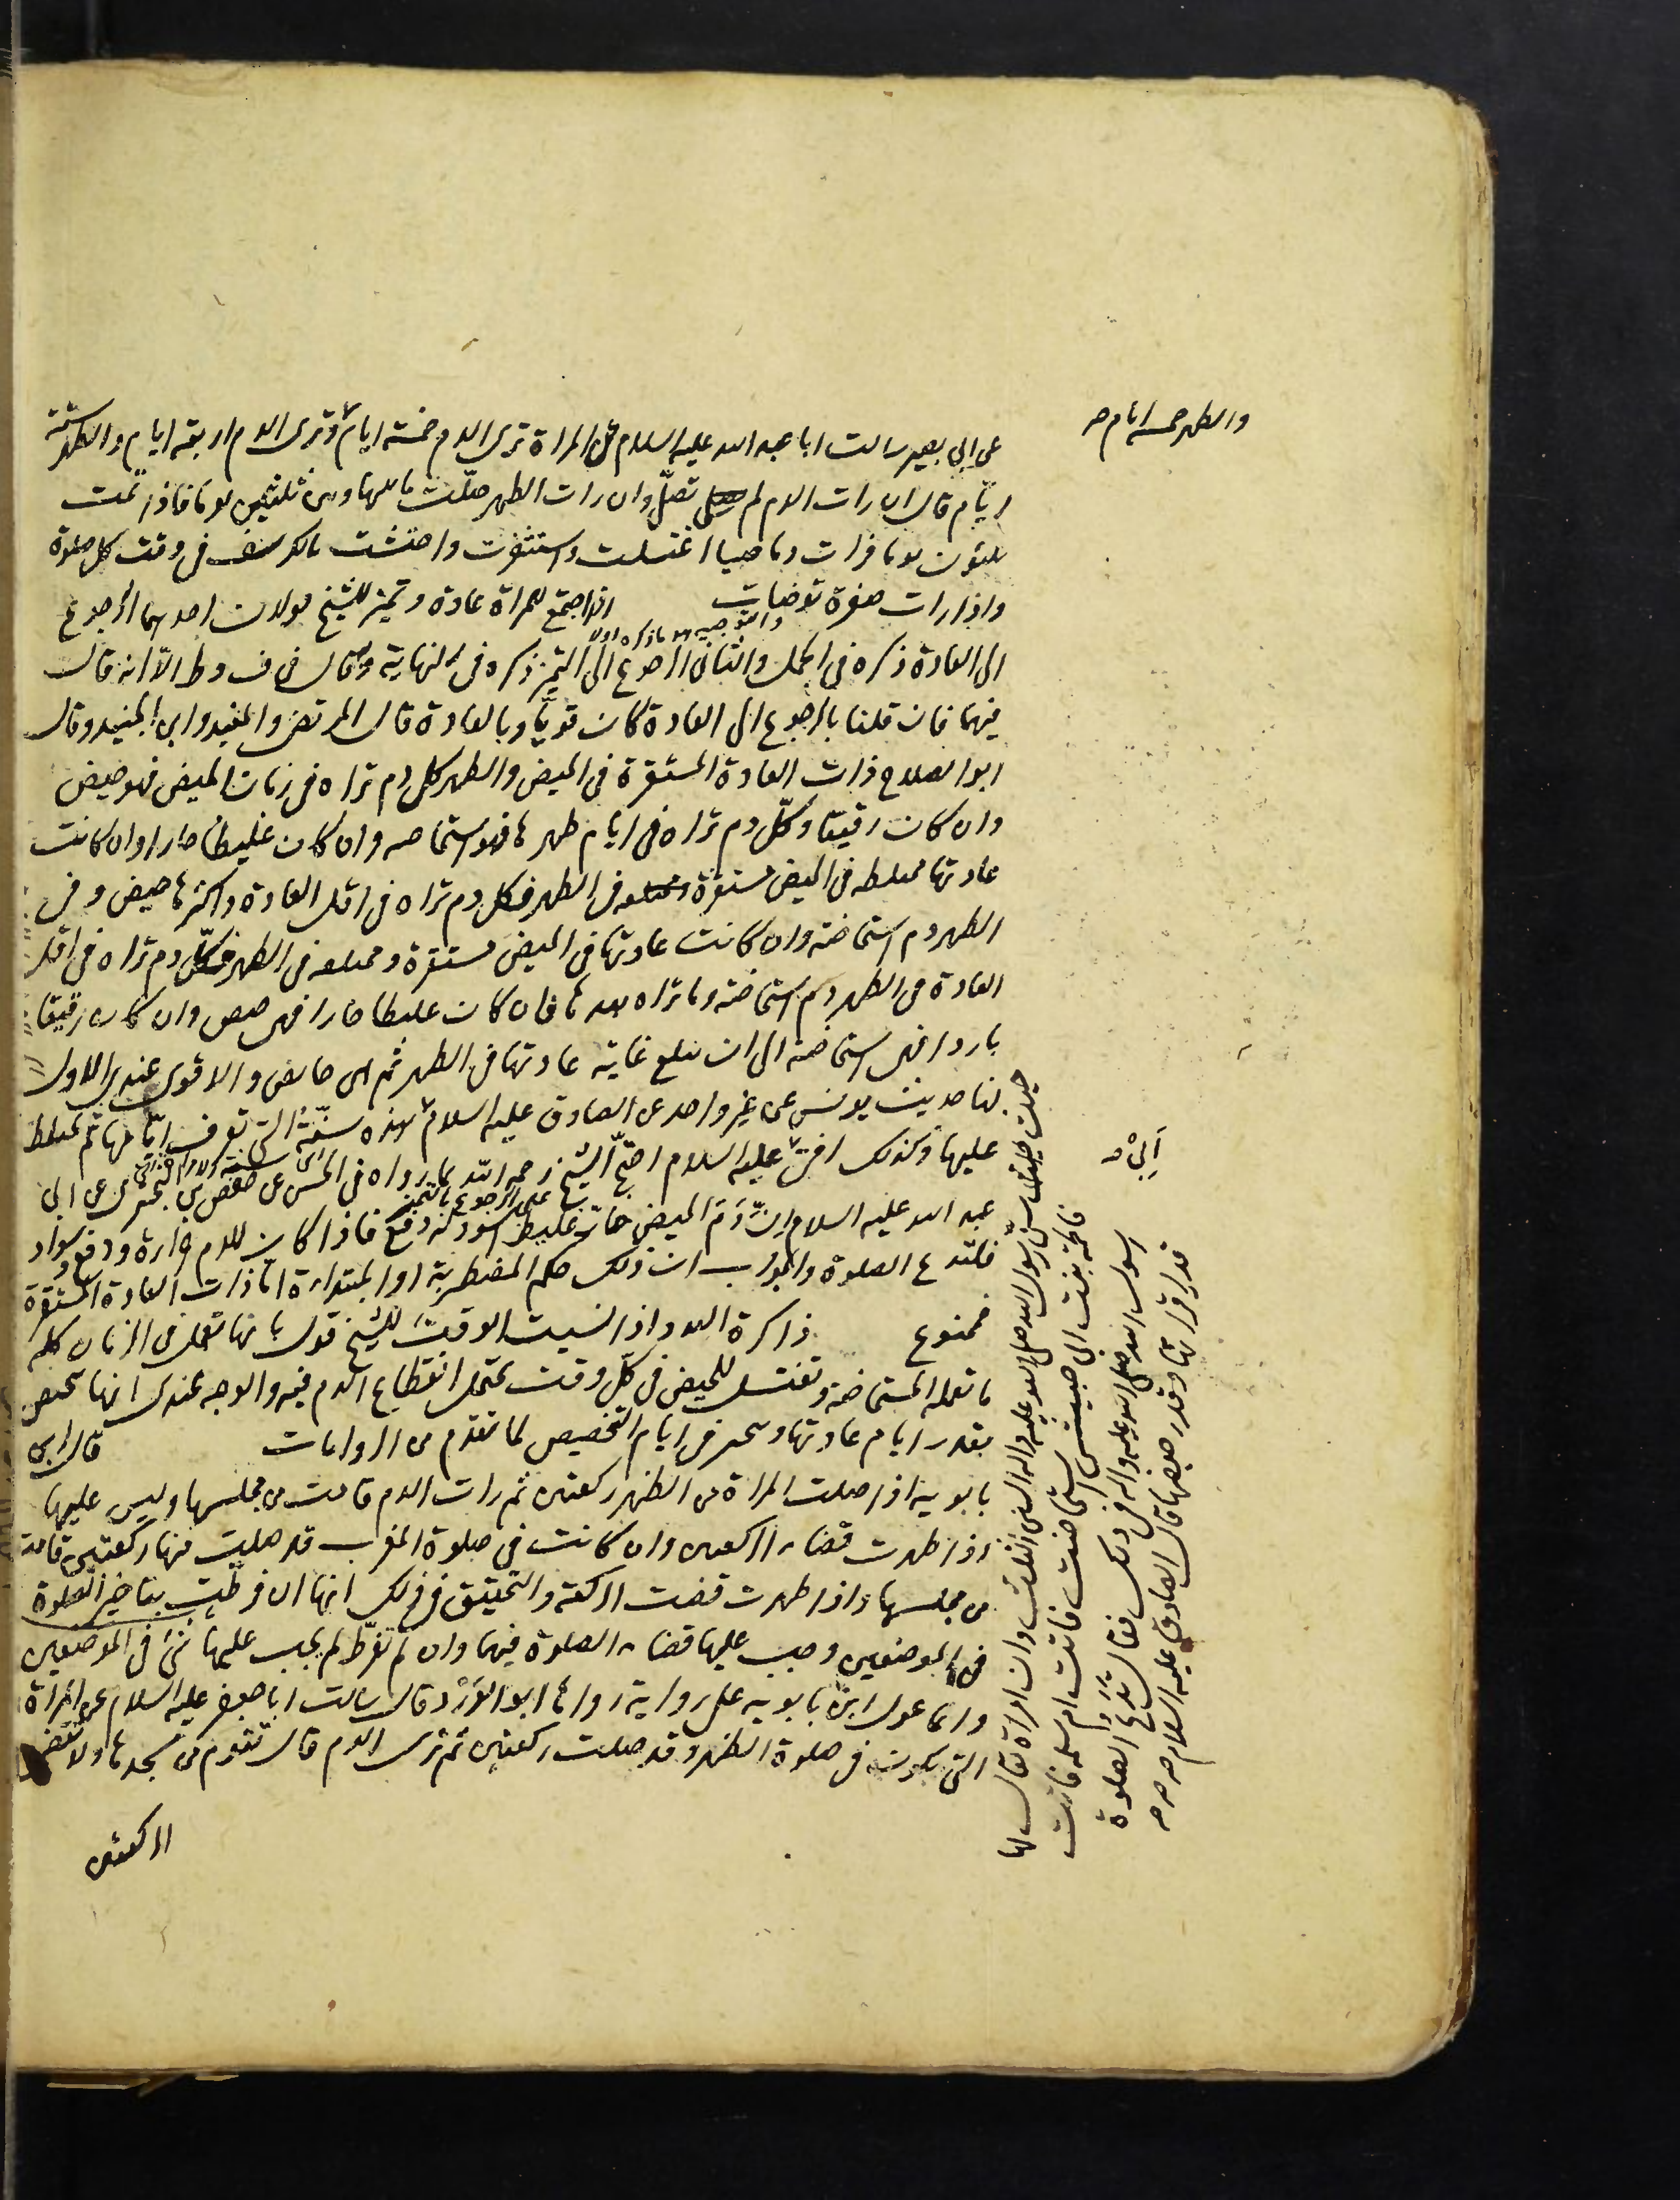 عن ابي بصير سالت ابا عبد الله عليه السلام عن المراة ترى الدم خمسة ايام وترى الدم اربعة ايام والطهر ستة
والطهر خمسة ايام صح
ايام قال ان رات الدم لم تصلّ وان رات الطهر صلّت ما بينها وبين ثلثين يوما فاذا تمت
ثلثون يوما فرات دما صبيبا اغتسلت واستثفرت واحتشت بالكرسف في وقت كل صلوة
واذا رات صفرة توضات اذا اجتمع للمراة عادة وتميز للشيخ قولان احدهما الرجوع
الى العادة ذكره في الجمل والثاني الرجوع الى التميز ذكره في النهاية وقال في ف وط الا انه قال
فيهما فان قلنا بالرجوع الى العادة كان قويّا وبالعادة قال المرتضى والمفيد وابن الجنيد وقال
ابو الصلاح ذات العادة المستقرة في الحيض والطهر كل دم تراه في زمان الحيض فهو حيض
وان كان رقيقا وكلّ دم تراه في ايام طهرها فهو استحاضه وان كان غليظا حارا وان كانت
عادتها مختلطه في الحيض مستقرة في الطهر فكل دم تراه في اقل العادة واكثرها حيض وفي
الطهر دم استحاضه وان كانت عادتها في الحيض مستقرة ومختلفه في الطهر فكلّ دم تراه في اقل
العادة من الطهر دم استحاضه وما تراه بعدها فان كان غليظا حارا فهى حيض وان كان رقيقا
باردا فهى استحاضه الى ان تبلغ غاية عادتها في الطهر ثم هى حائض والاقوى عندي الاول
لنا حديث يونس عن غير واحد عن الصادق عليه السلام هذه سنّة التي تعرف ايّامها ثم تختلط
عليها وكذلك افتى عليه السلام احتجّ الشيخ رحمه الله بما رواه في الحسن عن حفص بن البختري عن ابي
عبد الله عليه السلام انّ دم الحيض حارّ غليظ اسود له دفع فاذا كان للدم حرارة ودفع وسواد
فلتدع الصلوة والجواب ان ذلك حكم المضطربة او المبتداءة اما ذات العادة المستقرة
فممنوع ذاكرة العدد اذا نسيت الوقت للشيخ قول بانها تعمل في الزمان كله
ما تعمله المستحاضة وتغتسل للحيض في كلّ وقت يحتمل انقطاع الدم فيه والوجه عندي انها تتحيض
بقدر ايام عادتها وتتخير في ايام التخصيص لما تقدم من الروايات قال ابن
بابويه اذا صلت المراة من الظهر ركعتين ثم رات الدم قامت من مجلسها وليس عليها
اذا طهرت قضاء الركعتين وان كانت في صلوة المغرب قد صليت منها ركعتين قامت
من مجلسها واذا طهرت قضت الركعة والتحقيق في ذلك انها ان فرطت بتاخير الصلوة
في الموضعين وجب عليها قضاء الصلوة فيهما وان لم تفرّط لم يجب عليها شئ في الموضعين
وانما عول ابن بابويه على رواية رواها ابو الورد قال سالت ابا جعفر عليه السلام عن المراة
التي يكون في صلوة الظهر وقد صلت ركعتين ثم ترى الدم قال تقوم من مسجدها ولا تقضى
الركعتين
سنّ رسول الله صلى الله عليه واله السنن الثلث وان امراة يقال لها
فاطمة بنت ابي حبيش استحاضت فاتت ام سلمة فاتت
رسول الله صلى الله عليه واله في ذلك فقال تدع الصلوة
قدر اقرائها وقدر حيضها قال الصادق عليه السلام صح